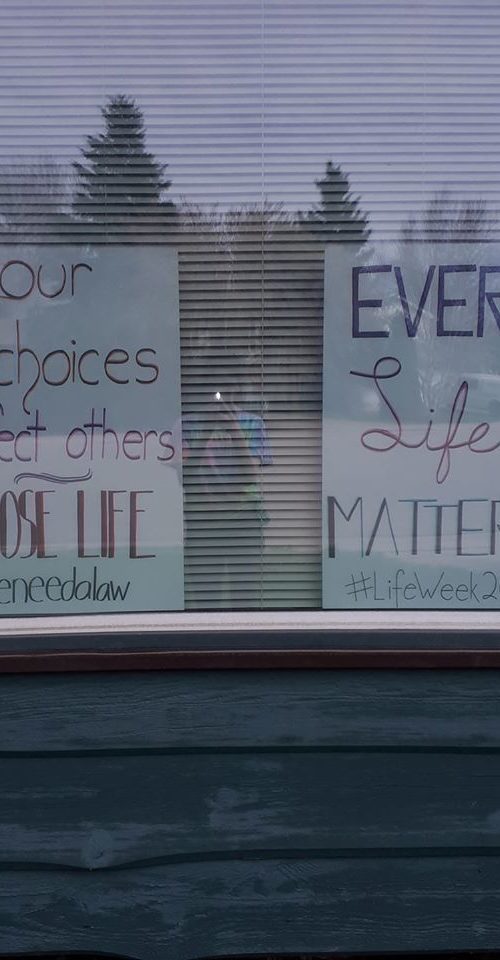 our
choices
fect others
OSE LIFE
eneedalaw
EVER
Life
MATTER
#LifeWeek2